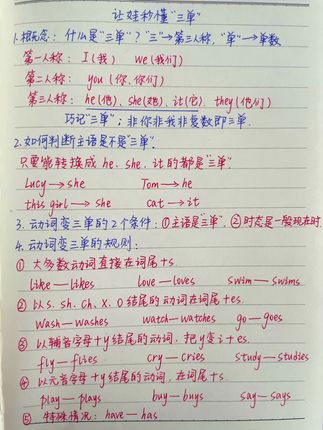 让娃秒懂“三单”
1.概念：什么是“三单”？“三”→第三人称，“单”→单数
第一人称：I(我) we(我们)
第二人称：you(你,你们)
第三人称：he(他), she(她), it(它). they(他们)
巧记“三单”；非你非我非复数即三单.
2.如何判断主语是不是“三单”.
只要能转换成 he. she. it的都是“三单”
Lucy→she Tom→he
this girl→she cat→it
3. 动词变三单的2个条件：①主语是“三单”. ②时态是一般现在时.
4. 动词变三单的规则：
① 大多数动词直接在词尾+s
like—likes love—loves swim—swims
② 以s. sh. ch. x. o结尾的动词在词尾+es.
wash—washes watch—watches go—goes
③ 以辅音字母+y结尾的动词. 把y变i+es.
fly—flies cry—cries study—studies
④ 以元音字母+y结尾的动词. 在词尾+s
play—plays buy—buys say—says
⑤ 特殊情况：have—has